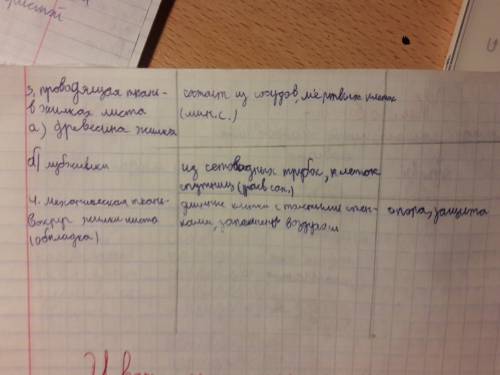 ристой
3. проводящая ткань- состоит из сосудов, мёртвых клеток
в жилках листа (мин.с.)
а) древесина жилка
б) лубжилки из ситовидных трубок, клеток
спутниц
4. механическая ткань- длинные клетки с толстыми стен- опора, защита
вокруг жилки листа ками, заполнены воздухом
(обкладка)